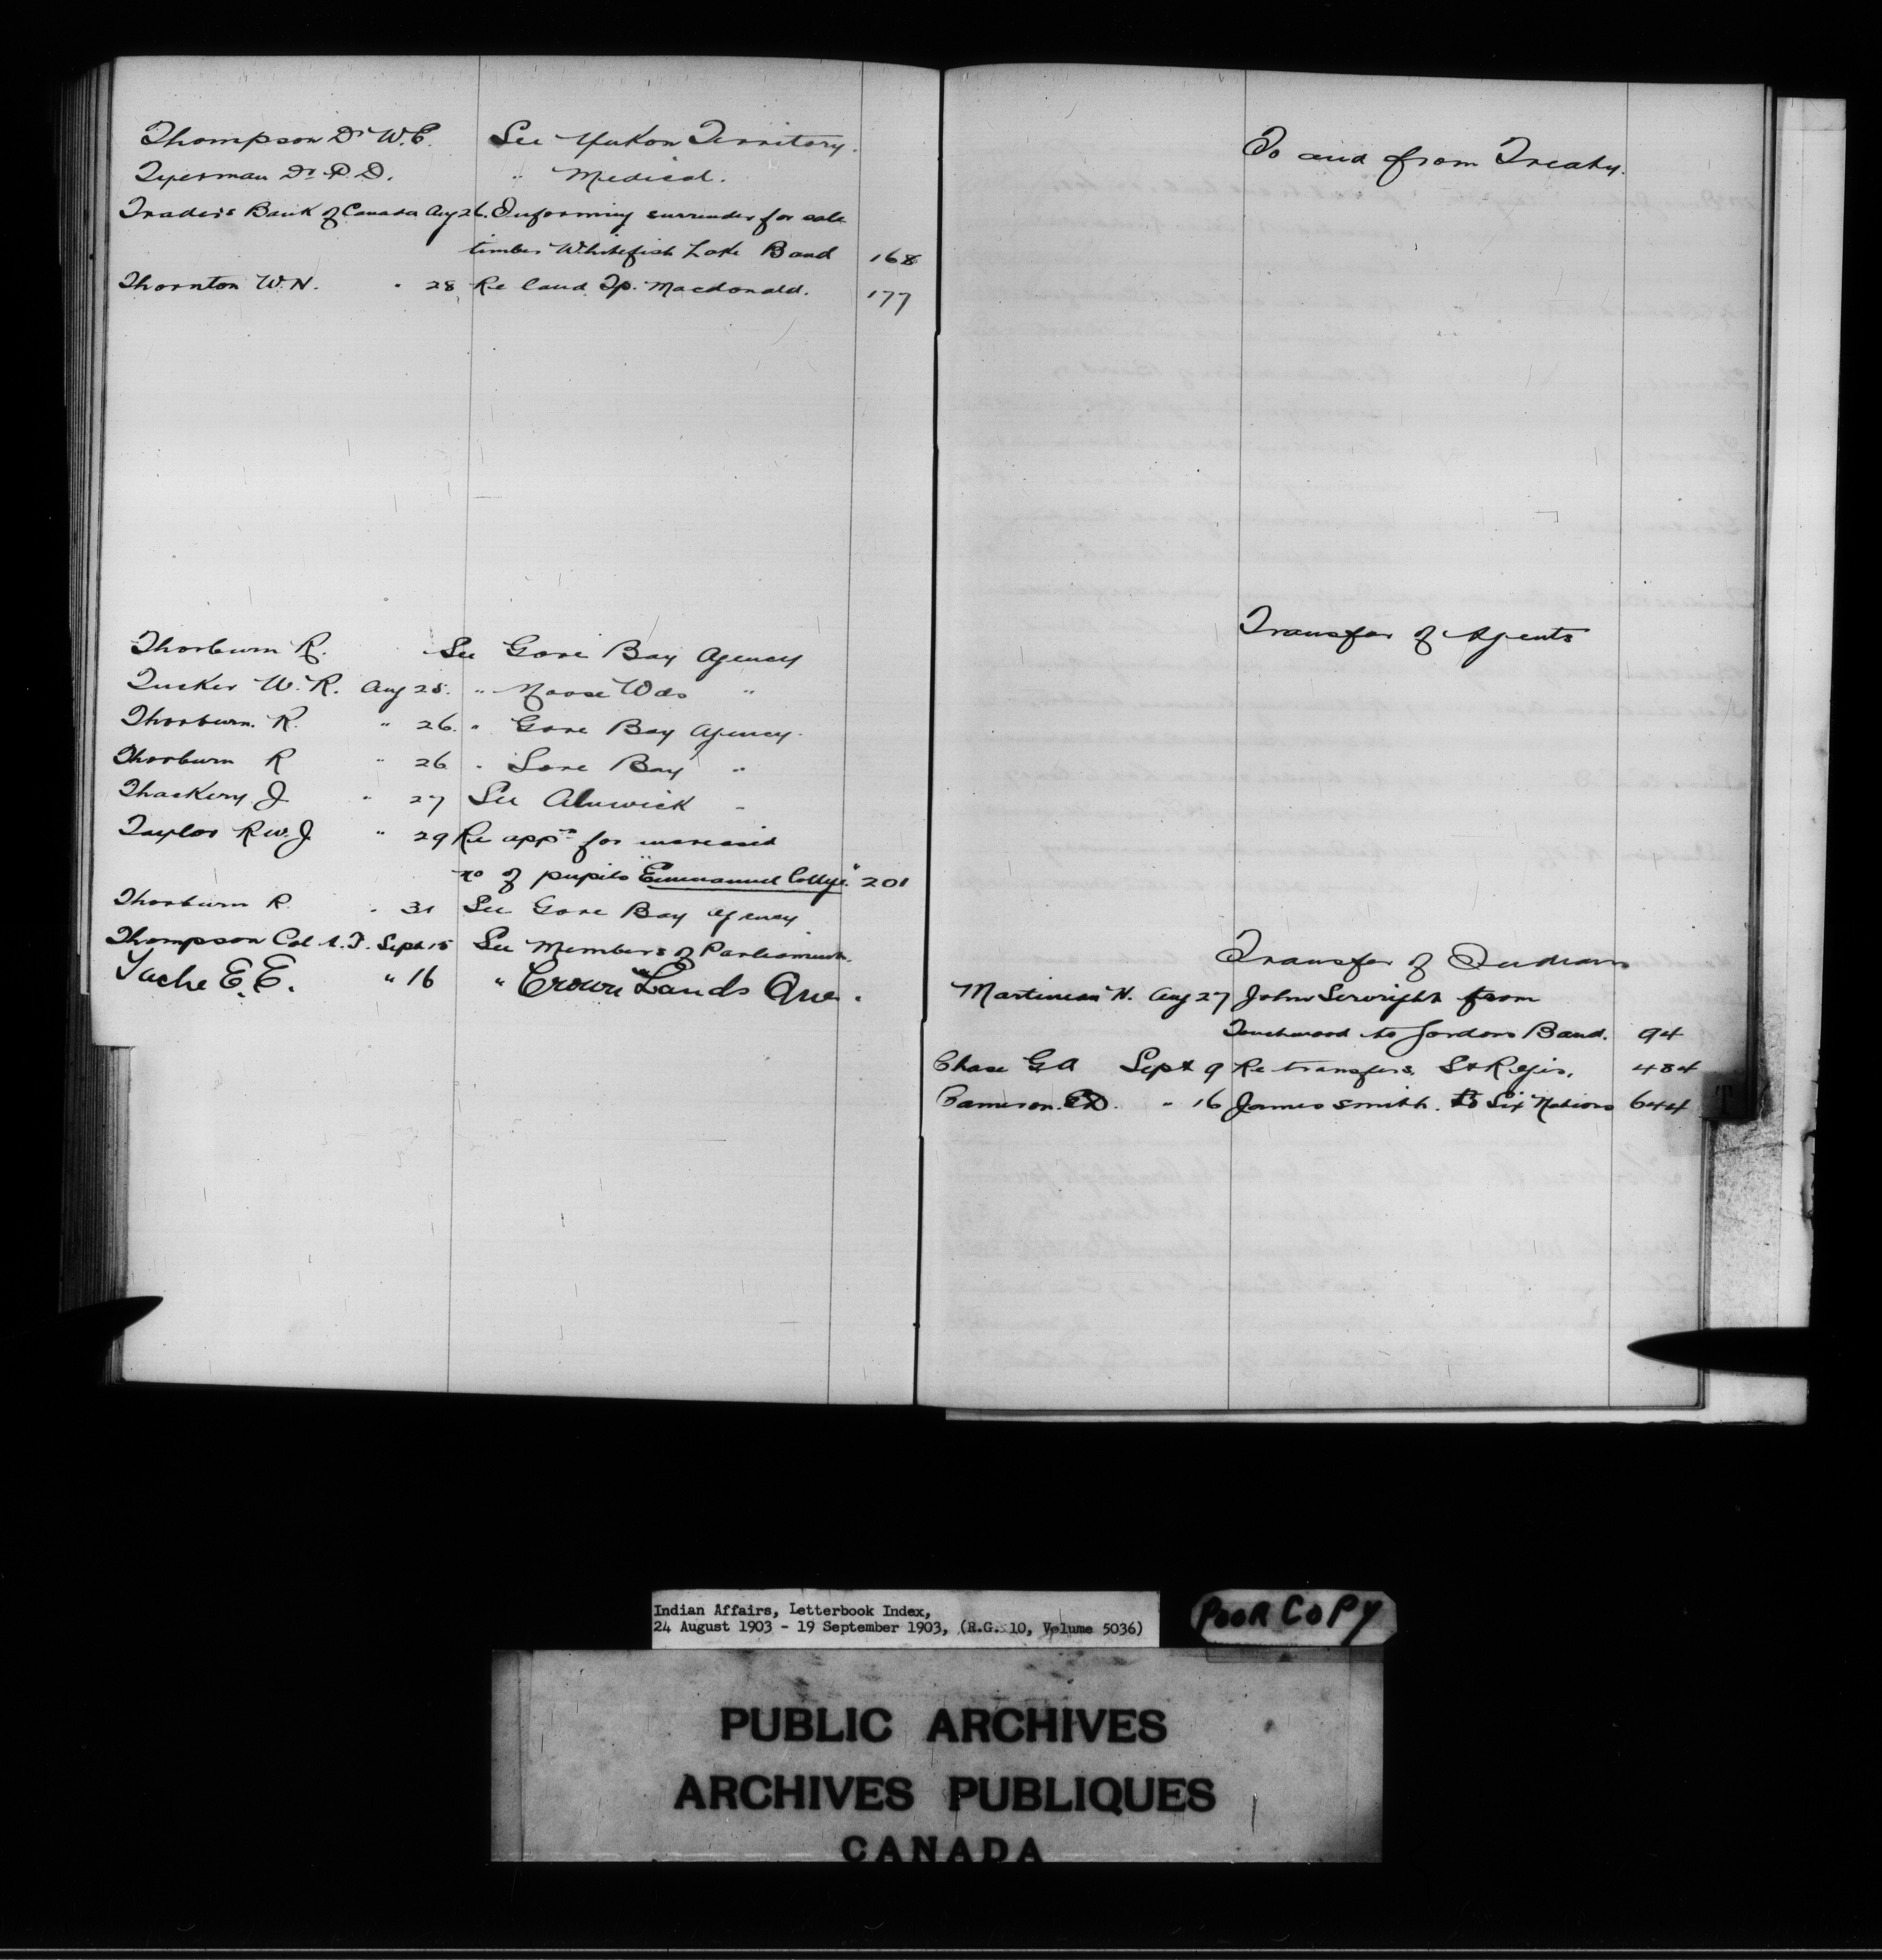 Thompson Dr W.C. See Yukon Territory.
Tyerman Dr P.D. " Medical.
Traders Bank of Canada Aug 26. Informing surrender for sale
timber Whitefish Lake Band 168
Thornton W.N. " 28 Re land Tp. Macdonald. 177
Thorburn R. See Gore Bay Agency
Tucker W.R. Aug 25. " Moose Wds "
Thorburn. R. " 26. " Gore Bay Agency.
Thorburn R " 26 " Gore Bay "
Thackery J " 27 See Alnwick "
Taylor Rev. J " 29 Re appn for increased
no of pupils "Emmanuel College." 201
Thorburn R. " 31 See Gore Bay Agency
Thompson Col A.T. Sept 15 See Members of Parliament.
Tache E.E. " 16 " Crown Lands Que.
To and from Treaty.
Transfer of Agents
Transfer of Indians
Martineau H. Aug 27 John Serwright from
Touchwood to Gordons Band. 94
Chase G A Sept 9 Re transfers. St Regis. 484
Cameron. E.D. " 16 James Smith. to Six Nations 644
T
Indian Affairs, Letterbook Index,
24 August 1903 - 19 September 1903, (R.G. 10, Volume 5036)
POOR COPY
PUBLIC ARCHIVES
ARCHIVES PUBLIQUES
CANADA